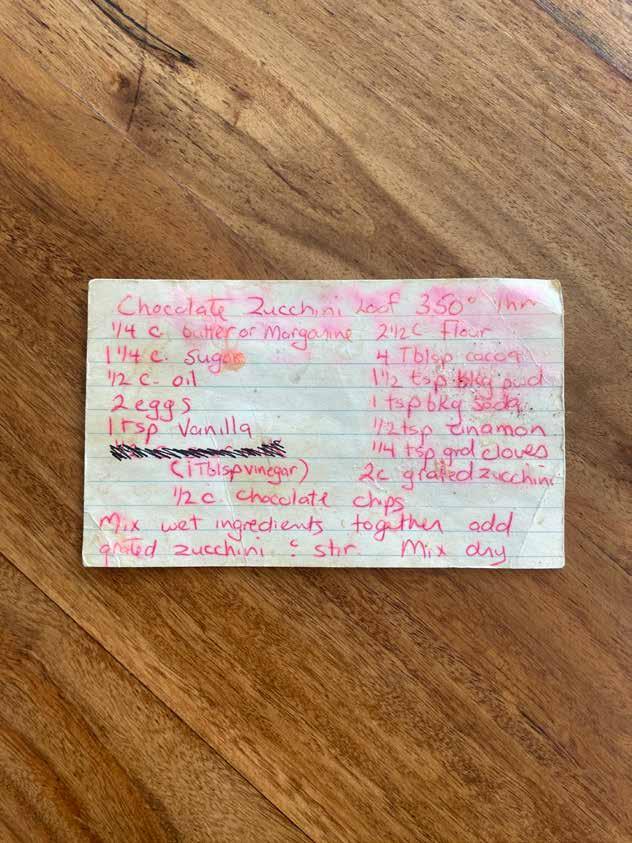 Chocolate Zucchini Loaf 350° 1hr
1/4 c. butter or Margarine 2 1/2 c flour
1 1/4 c. sugar 4 Tblsp cocoa
1/2 c. oil 1 1/2 tsp bkg pwd
2 eggs 1 tsp bkg soda
1 tsp Vanilla 1/2 tsp cinamon
1/4 tsp grd cloves
(1 Tblsp vinegar) 2c grated zucchini
1/2 c. chocolate chips
Mix wet ingredients together add
grated zucchini & stir. Mix dry